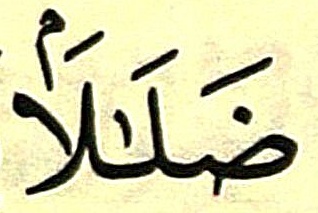 ضَلَٰلَۢا